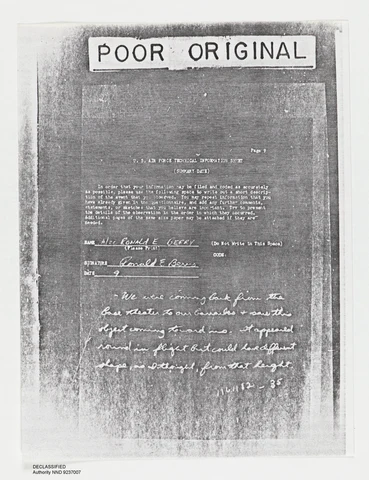 POOR ORIGINAL
Page 5
U. S. AIR FORCE TECHNICAL INFORMATION SHEET
(SUMMARY DATA)
In order that your information may be filed and coded as accurately
as possible, please use the following space to write out a short descrip-
tion of the event that you observed. You may repeat information that you
have already given in the questionnaire, and add any further comments,
statements, or sketches that you believe are important. Try to present
the details of the observation in the order in which they occurred.
Additional pages of the same size paper may be attached if they are
needed.
NAME A/2c RONALD E
(Please Print)
(Do Not Write in This Space)
CODE:
SIGNATURE Ronald E
DATE 9
"We were coming back from the
base theater to our barracks & saw this
object coming toward us. it appeared
round in flight but could be different
shape, as I thought, from that height.
DECLASSIFIED
Authority NND 9257007